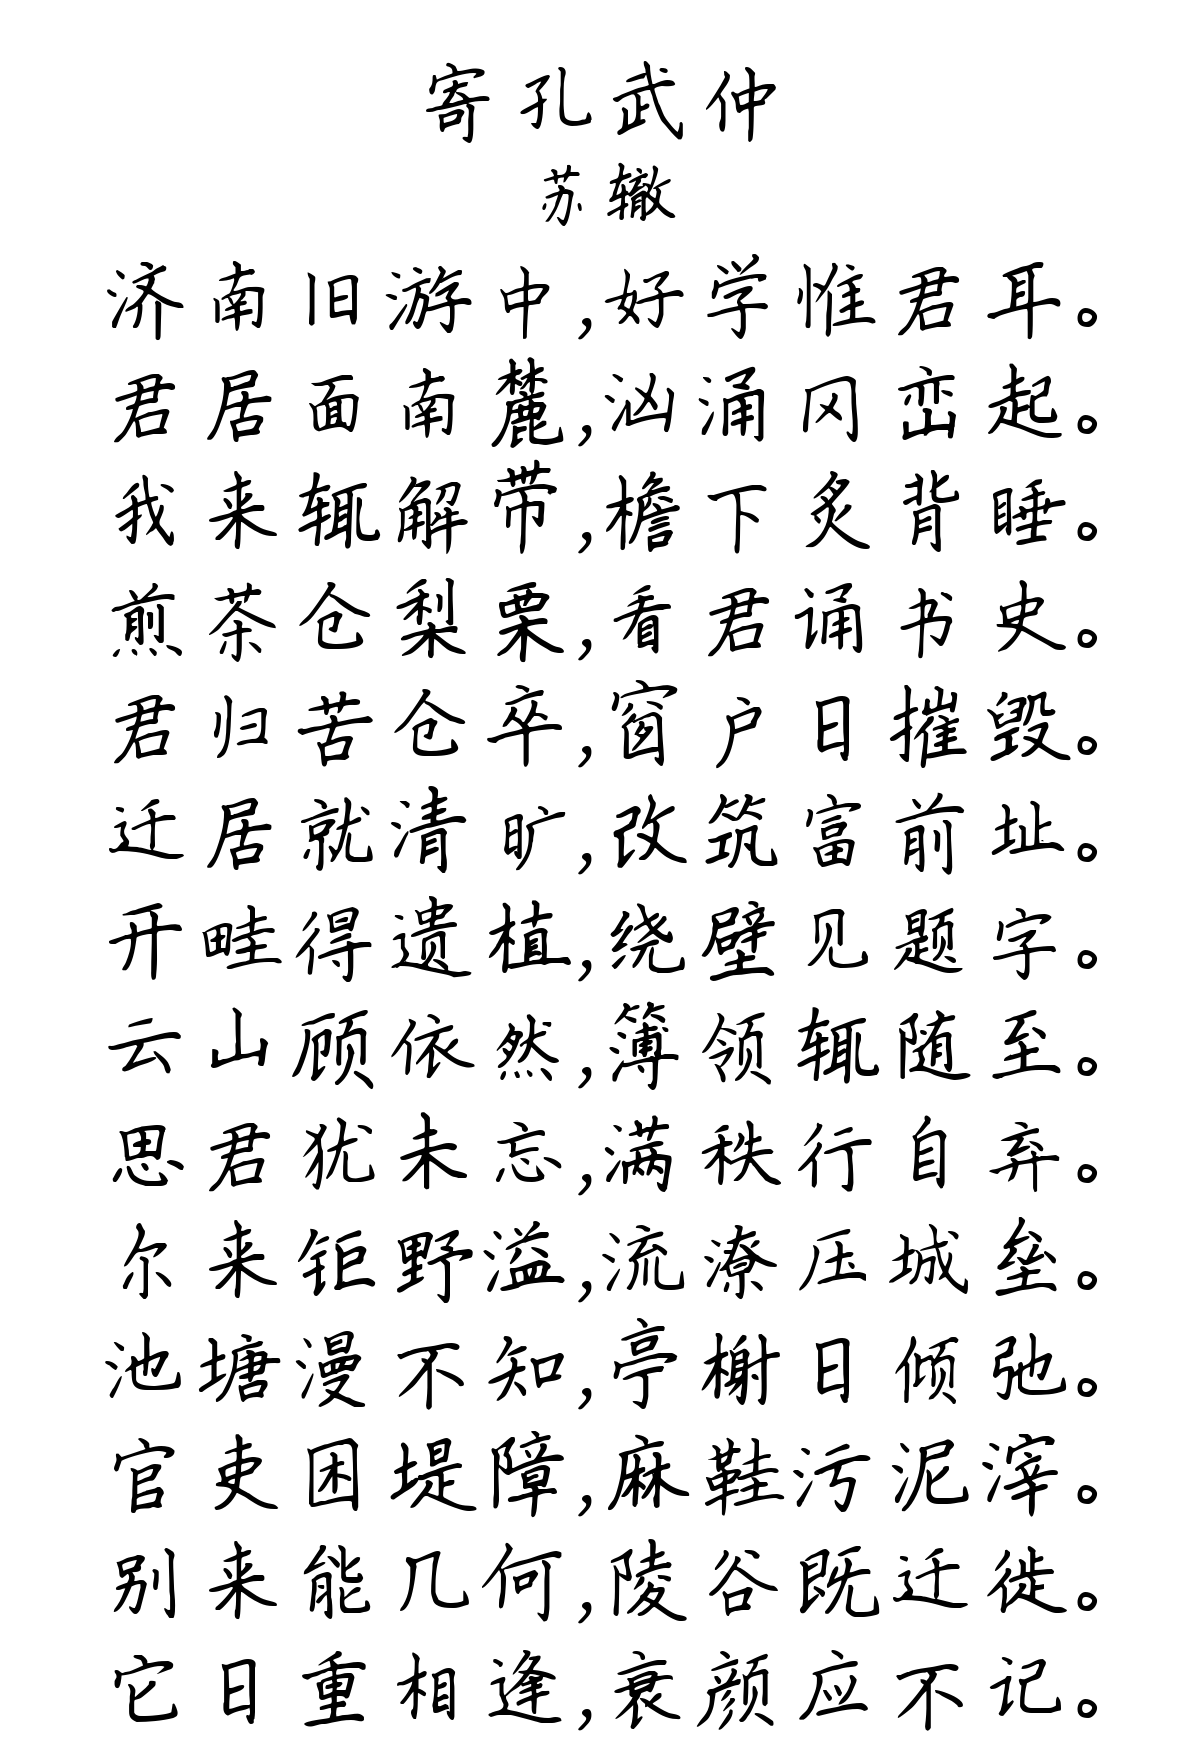 寄孔武仲
苏辙
济南旧游中,好学惟君耳。
君居面南麓,汹涌冈峦起。
我来辄解带,檐下炙背睡。
煎茶仓梨栗,看君诵书史。
君归苦仓卒,窗户日摧毁。
迁居就清旷,改筑富前址。
开畦得遗植,绕壁见题字。
云山顾依然,簿领辄随至。
思君犹未忘,满秩行自弃。
尔来钜野溢,流潦压城垒。
池塘漫不知,亭榭日倾弛。
官吏困堤障,麻鞋污泥滓。
别来能几何,陵谷既迁徙。
它日重相逢,衰颜应不记。